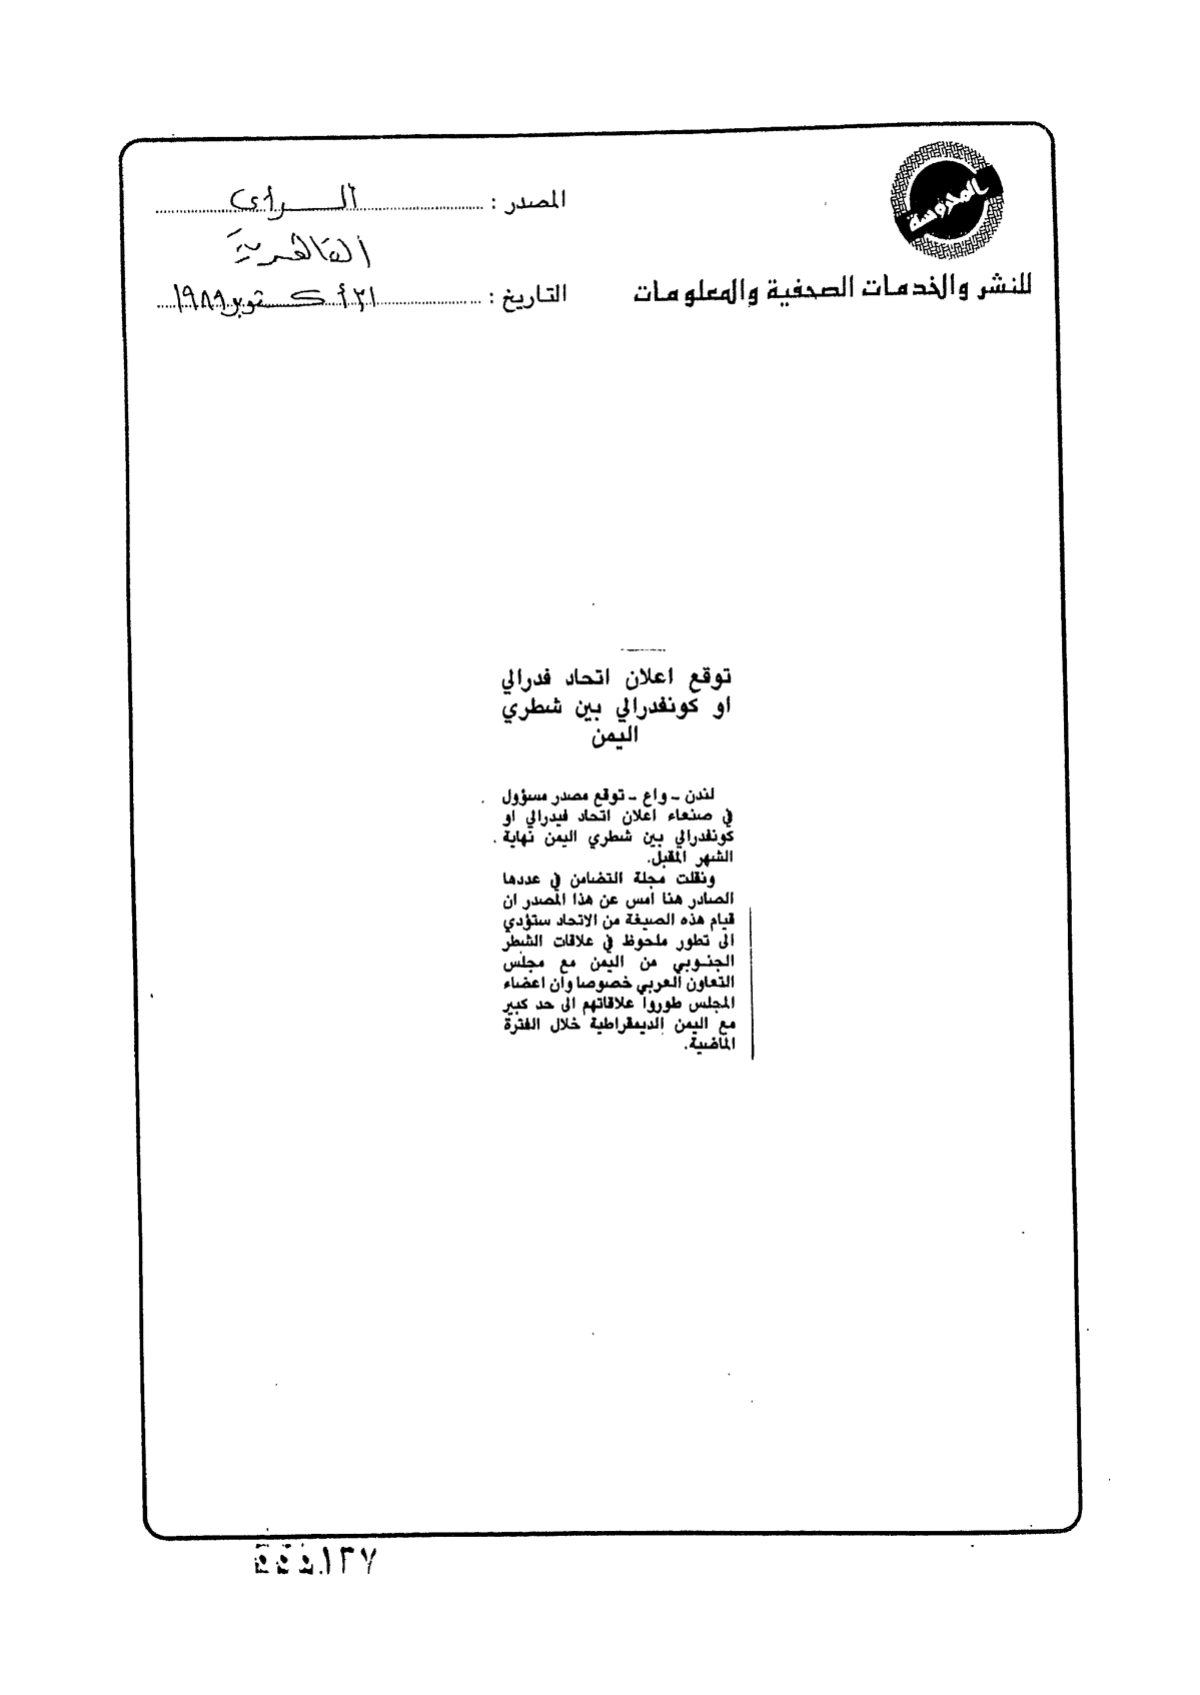 المحروسة
للنشر والخدمات الصحفية والمعلومات
المصدر : الرأى
القاهرية
التاريخ : ٣١ أكتوبر ١٩٨٩
توقع اعلان اتحاد فدرالي
او كونفدرالي بين شطري
اليمن
لندن - واع - توقع مصدر مسؤول
في صنعاء اعلان اتحاد فيدرالي او
كونفدرالي بين شطري اليمن نهاية
الشهر المقبل.
ونقلت مجلة التضامن في عددها
الصادر هنا امس عن هذا المصدر ان
قيام هذه الصيغة من الاتحاد ستؤدي
الى تطور ملحوظ في علاقات الشطر
الجنوبي من اليمن مع مجلس
التعاون العربي خصوصا وان اعضاء
المجلس طوروا علاقاتهم الى حد كبير
مع اليمن الديمقراطية خلال الفترة
الماضية.